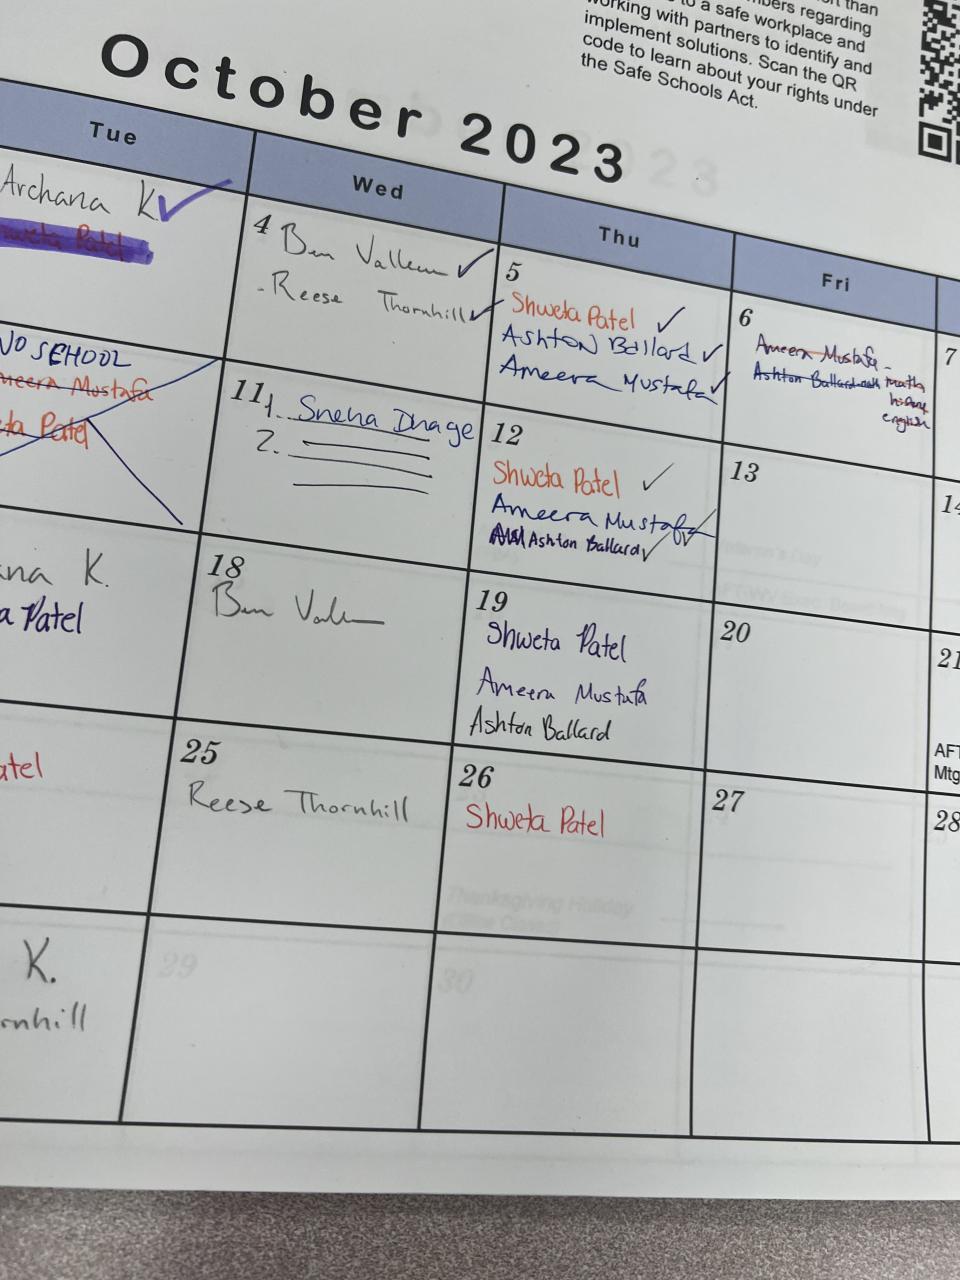 than
regarding
to a safe workplace and
working with partners to identify and
implement solutions. Scan the QR
code to learn about your rights under
the Safe Schools Act.
October 2023
Tue
Wed
Thu
Fri
Archana K.
Shweta Patel
4
Reese Thornhill
5
Shweta Patel
Ashton Ballard
Ameera Mustafa
6
Ameera Mustafa -
Ashton Ballard math
history
english
7
NO SCHOOL
Ameera Mustafa
Patel
11
1. Sneha Dhage
2.
12
Shweta Patel
Ameera Mustafa
Ashton Ballard
13
14
K.
Patel
18
Ben
19
Shweta Patel
Ameera Mustafa
Ashton Ballard
20
21
AFT
Mtg
25
Reese Thornhill
26
Shweta Patel
27
28
Thanksgiving Holiday
K.
29
30